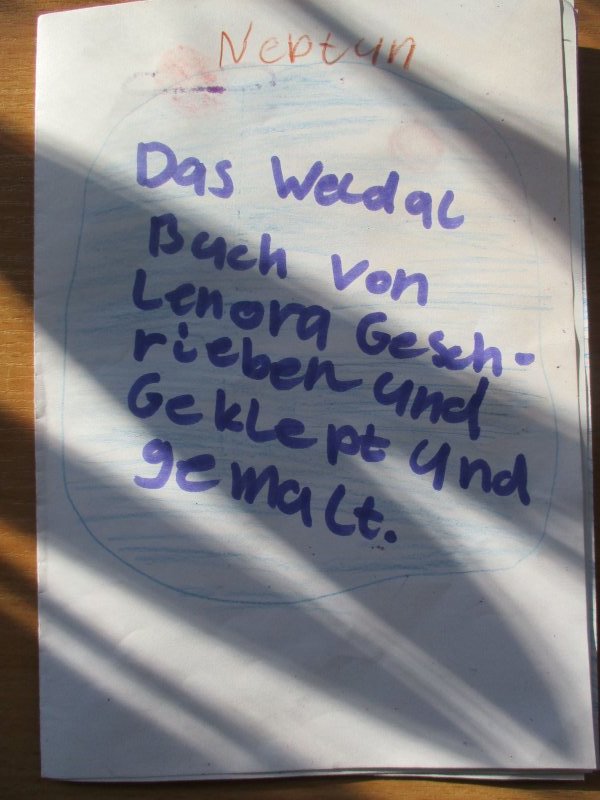 Neptun
Das Weldal
Buch von
Lenora Gesch-
rieben und
Geklept und
gemalt.